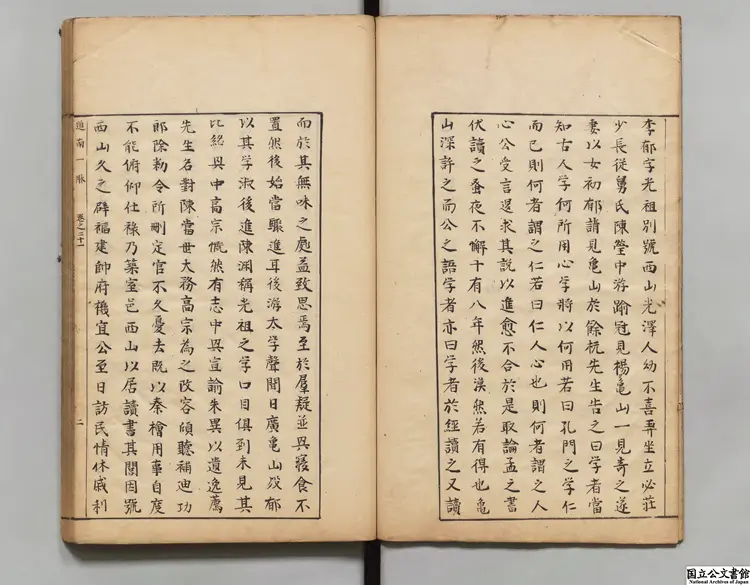 李郁字光祖別號西山光澤人幼不喜弄坐立必莊
少長從舅氏陳瑩中游踰冠見楊龜山一見奇之遂
妻以女初郁請見龜山於餘杭先生告之曰学者當
知古人学何所用心学將以何用若曰孔門之学仁
而已則何者謂之仁若曰仁人心也則何者謂之人
心公受言退求其說以進愈不合於是取論孟之書
伏讀之蚤夜不懈十有八年然後渙然若有得也龜
山深許之而公之語学者亦曰学者於經讀之又讀
而於其無味之處益致思焉至於羣疑並興寢食不
置然後始當驟進耳後游太学聲聞日廣龜山歿郁
以其学淑後進陳渊稱光祖之学口目俱到未見其
比紹興中高宗慨然有志中興宣諭朱異以遺逸薦
先生召對陳當世大務高宗為之改容傾聽補迪功
郎除勅令所刪定官不久憂去既以秦檜用事自度
不能俯仰仕祿乃築室邑西山以居讀書其間因號
西山久之辟福建帥府機宜公至日訪民情休戚利
道南一脉 卷之二十一 二
国立公文書館
National Archives of Japan